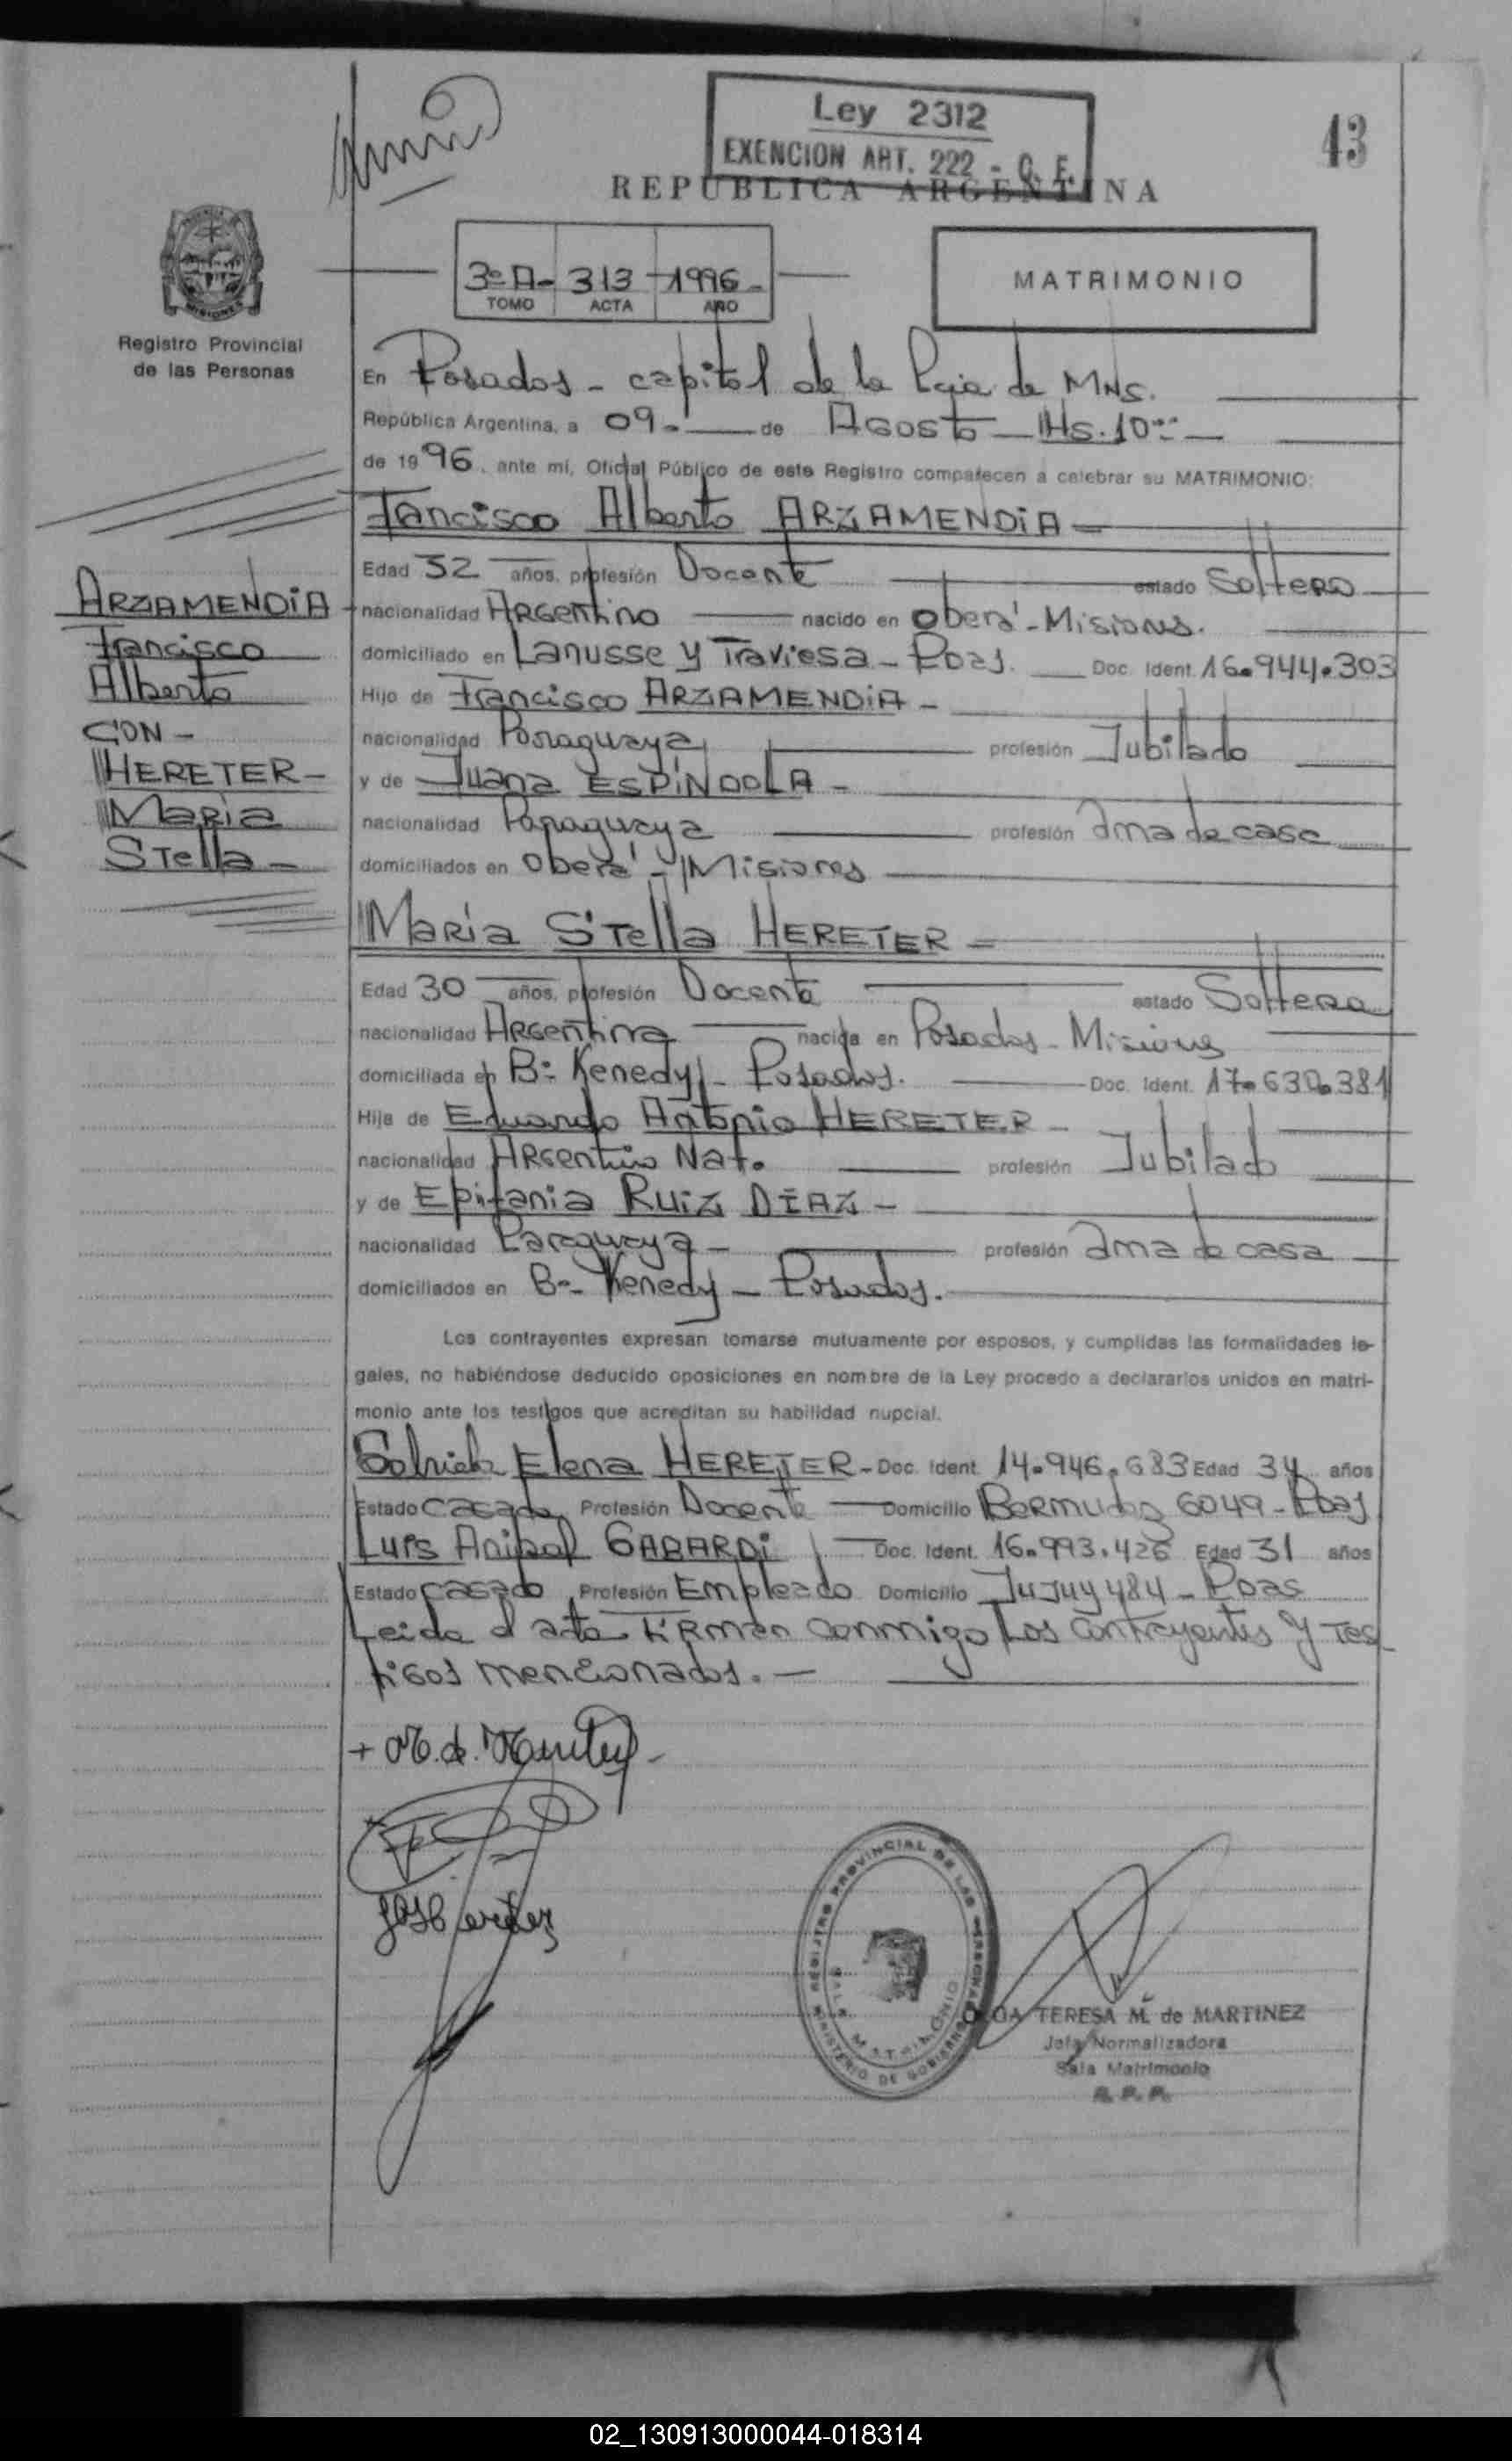 Ley 2312
EXENCION ART. 222 - C. F.
43
REPUBLICA ARGENTINA
3º A- 313 -1996-
TOMO ACTA AÑO
MATRIMONIO
Registro Provincial
de las Personas
En Posadas - capital de la Pcia de MNS.
República Argentina, a 09.- de Agosto - Hs. 10
de 1996, ante mí, Oficial Público de este Registro comparecen a celebrar su MATRIMONIO:
Francisco Alberto ARZAMENDIA -
Edad 32 años, profesión Docente estado Soltero
nacionalidad Argentino nacido en Oberá - Misiones.
domiciliado en Lanusse y Traviesa - Pdas. Doc. Ident. 16.944.303
Hijo de Francisco ARZAMENDIA -
nacionalidad Paraguaya profesión Jubilado
y de Juana ESPÍNDOLA -
nacionalidad Paraguaya profesión ama de casa
domiciliados en Oberá - Misiones
ARZAMENDIA
Francisco
Alberto
CON -
HERETER -
Maria
Stella -
Maria Stella HERETER -
Edad 30 años, profesión Docente estado Soltera
nacionalidad Argentina nacida en Posadas - Misiones
domiciliada en Bº Kenedy - Posadas. Doc. Ident. 17.630.381
Hija de Eduardo Antonio HERETER -
nacionalidad Argentino Nat. profesión Jubilado
y de Epifania RUIZ DIAZ -
nacionalidad Paraguaya - profesión ama de casa
domiciliados en Bº- Kenedy - Posadas.
Los contrayentes expresan tomarse mutuamente por esposos, y cumplidas las formalidades le-
gales, no habiéndose deducido oposiciones en nombre de la Ley procedo a declararlos unidos en matri-
monio ante los testigos que acreditan su habilidad nupcial.
Gabriela Elena HERETER - Doc. Ident. 14.946.683 Edad 34 años
Estado casada Profesión Docente Domicilio Bermudez 6049 - Pdas
Luis Anibal GABARDI Doc. Ident. 16.993.426 Edad 31 años
Estado casado Profesión Empleado Domicilio Jujuy 484 - Pdas
Leida el acta Firman conmigo los contrayentes y tes-
tigos mencionados. -
REGISTRO PROVINCIAL DE LAS PERSONAS
MINISTERIO DE GOBIERNO
MATRIMONIO
TERESA M. de MARTINEZ
Jefa Normalizadora
Sala Matrimonio
R. P. P.
02_130913000044-018314